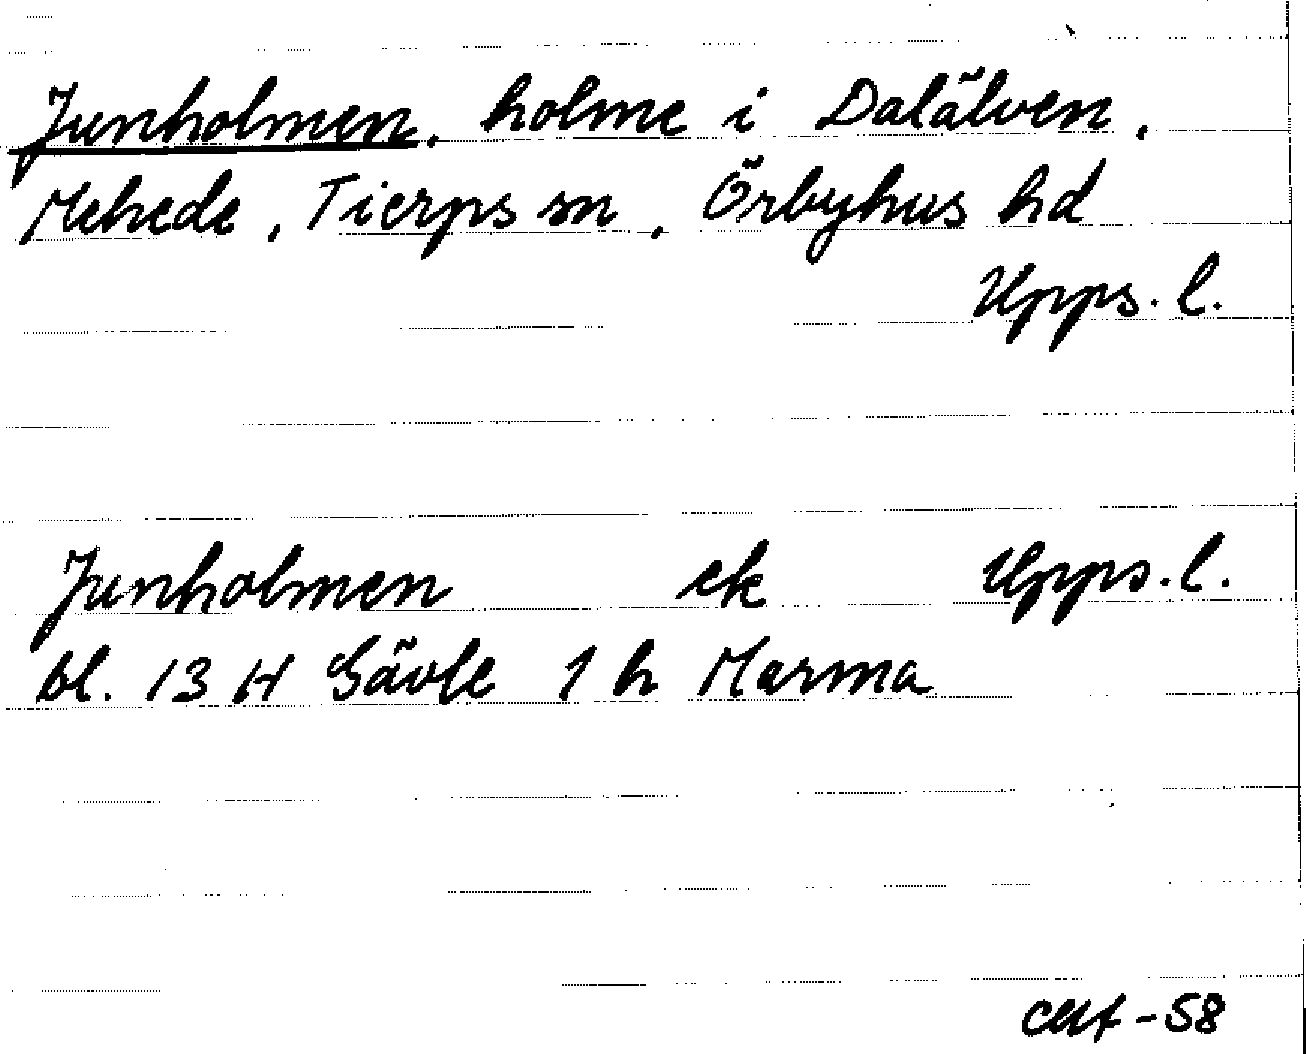 Junholmen, holme i Dalälven,
Mehede, Tierps sn, Örbyhus hd
Upps. l.
Junholmen ek Upps. l.
bl. 13 H Gävle 1 h Marma